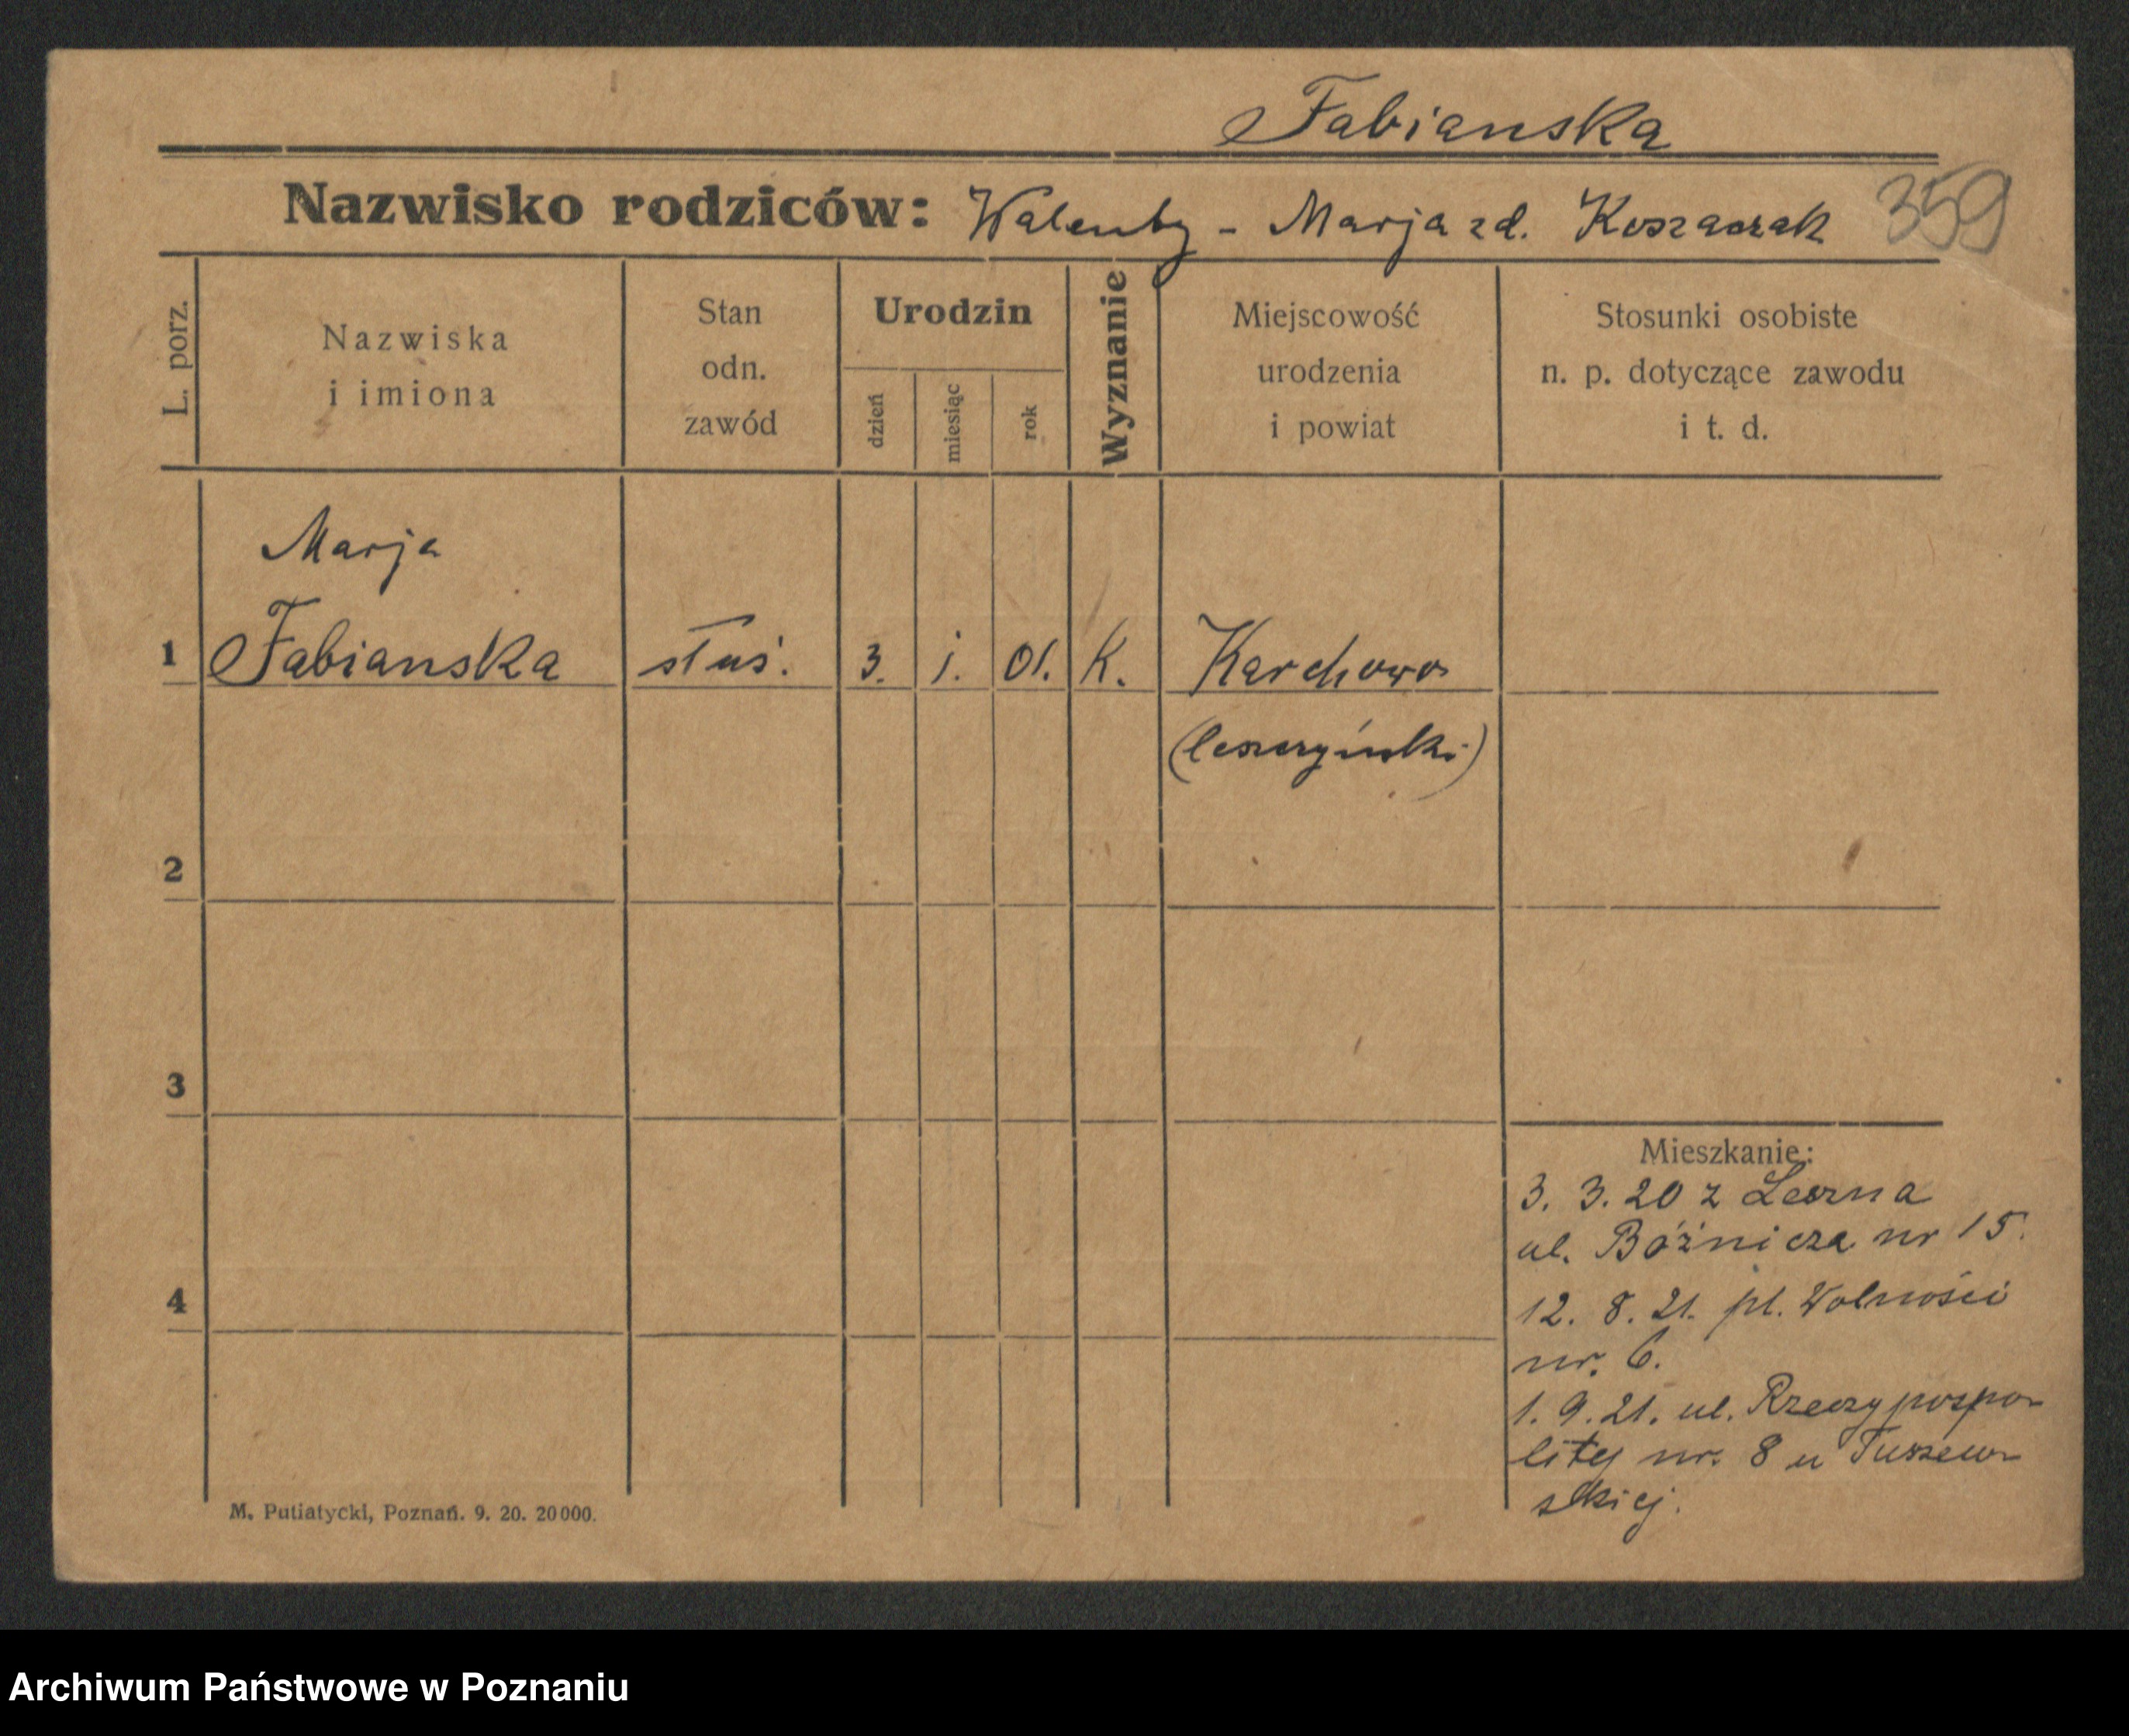 Fabianska
Nazwisko rodziców: Walenty - Marja zd. Koszaczak 359
L. porz.
Nazwiska
i imiona
Stan
odn.
zawód
Urodzin
dzień
miesiąc
rok
Wyznanie
Miejscowość
urodzenia
i powiat
Stosunki osobiste
n. p. dotyczące zawodu
i t. d.
Marja
1 Fabianska służ. 3. 1. 01. K. Karchowo
(leszczyński)
2
3
4
Mieszkanie:
3. 3. 20 z Leszna
ul. Bóżnicza nr 15.
12. 8. 21. pl. Wolności
nr. 6.
1. 9. 21. ul. Rzeczypospo-
litej nr. 8 u Tuszew-
skiej.
M. Putiatycki, Poznań. 9. 20. 20000.
Archiwum Państwowe w Poznaniu